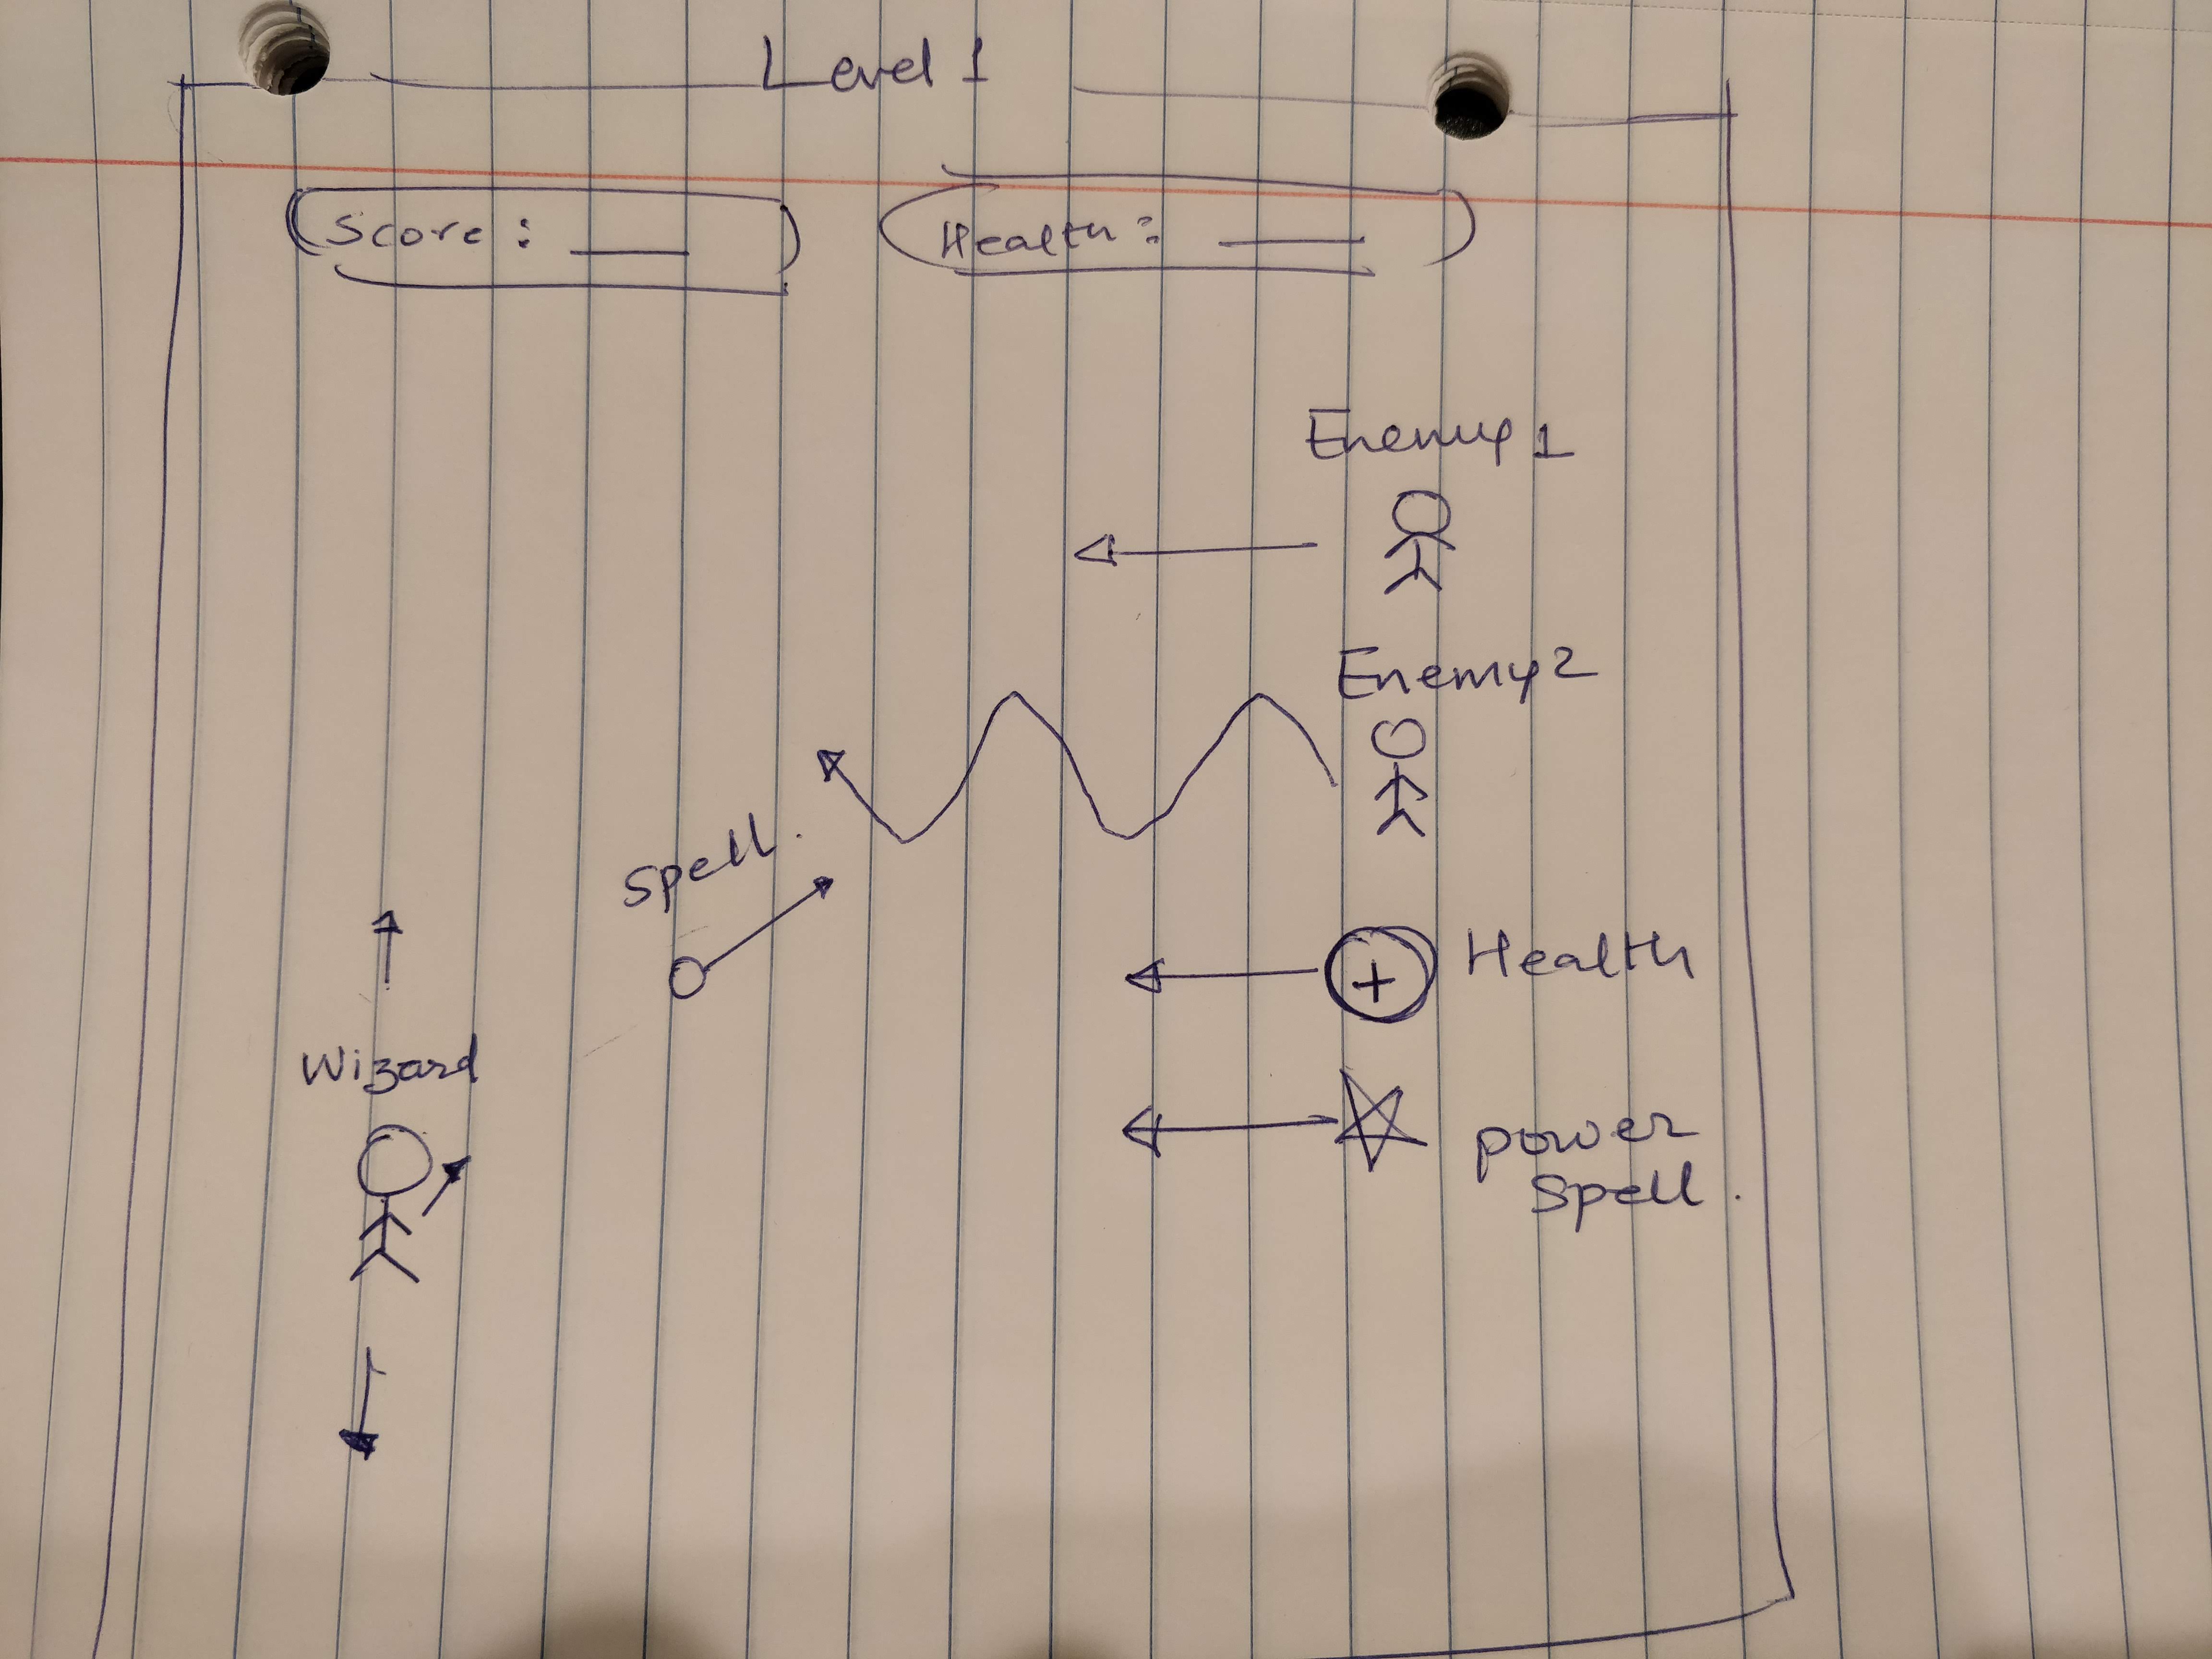 Level 1
Score: ___
Health: ___
Enemy 1
Enemy 2
Spell.
Health
Wizard
power
Spell.